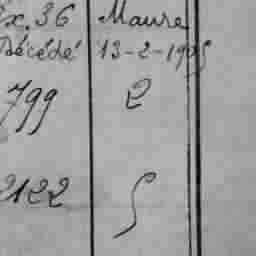 Ex. 36 Maure
Décédé 13-2-1905
799 2
2122 5